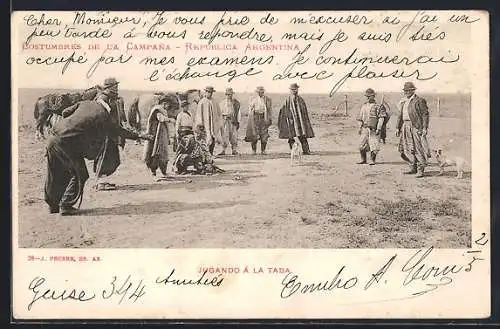 Cher, Monsieur, Je vous prie de m'excuser si j'ai un
peu tardé à vous repondre, mais je suis très
COSTUMBRES DE LA CAMPAÑA - REPUBLICA ARGENTINA
occupé par mes examens. Je continuerai
l'échange avec plaisir
28-J. PEUSER, BS. AS.
JUGANDO Á LA TABA
Amitiés
3/4
Emilio A.
2/5